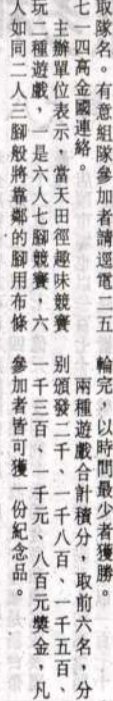 取隊名。有意組隊參加者請逕電二五
七一四高金國連絡。
主辦單位表示，當天田徑趣味競賽
玩二種遊戲，一是六人七腳競賽，六
人如同二人三腳般將靠鄰的腳用布條
輪完，以時間最少者獲勝。
兩種遊戲合計積分，取前六名，分
別頒發二千、一千八百、一千五百、
一千三百、一千元、八百元獎金，凡
參加者皆可獲一份紀念品。